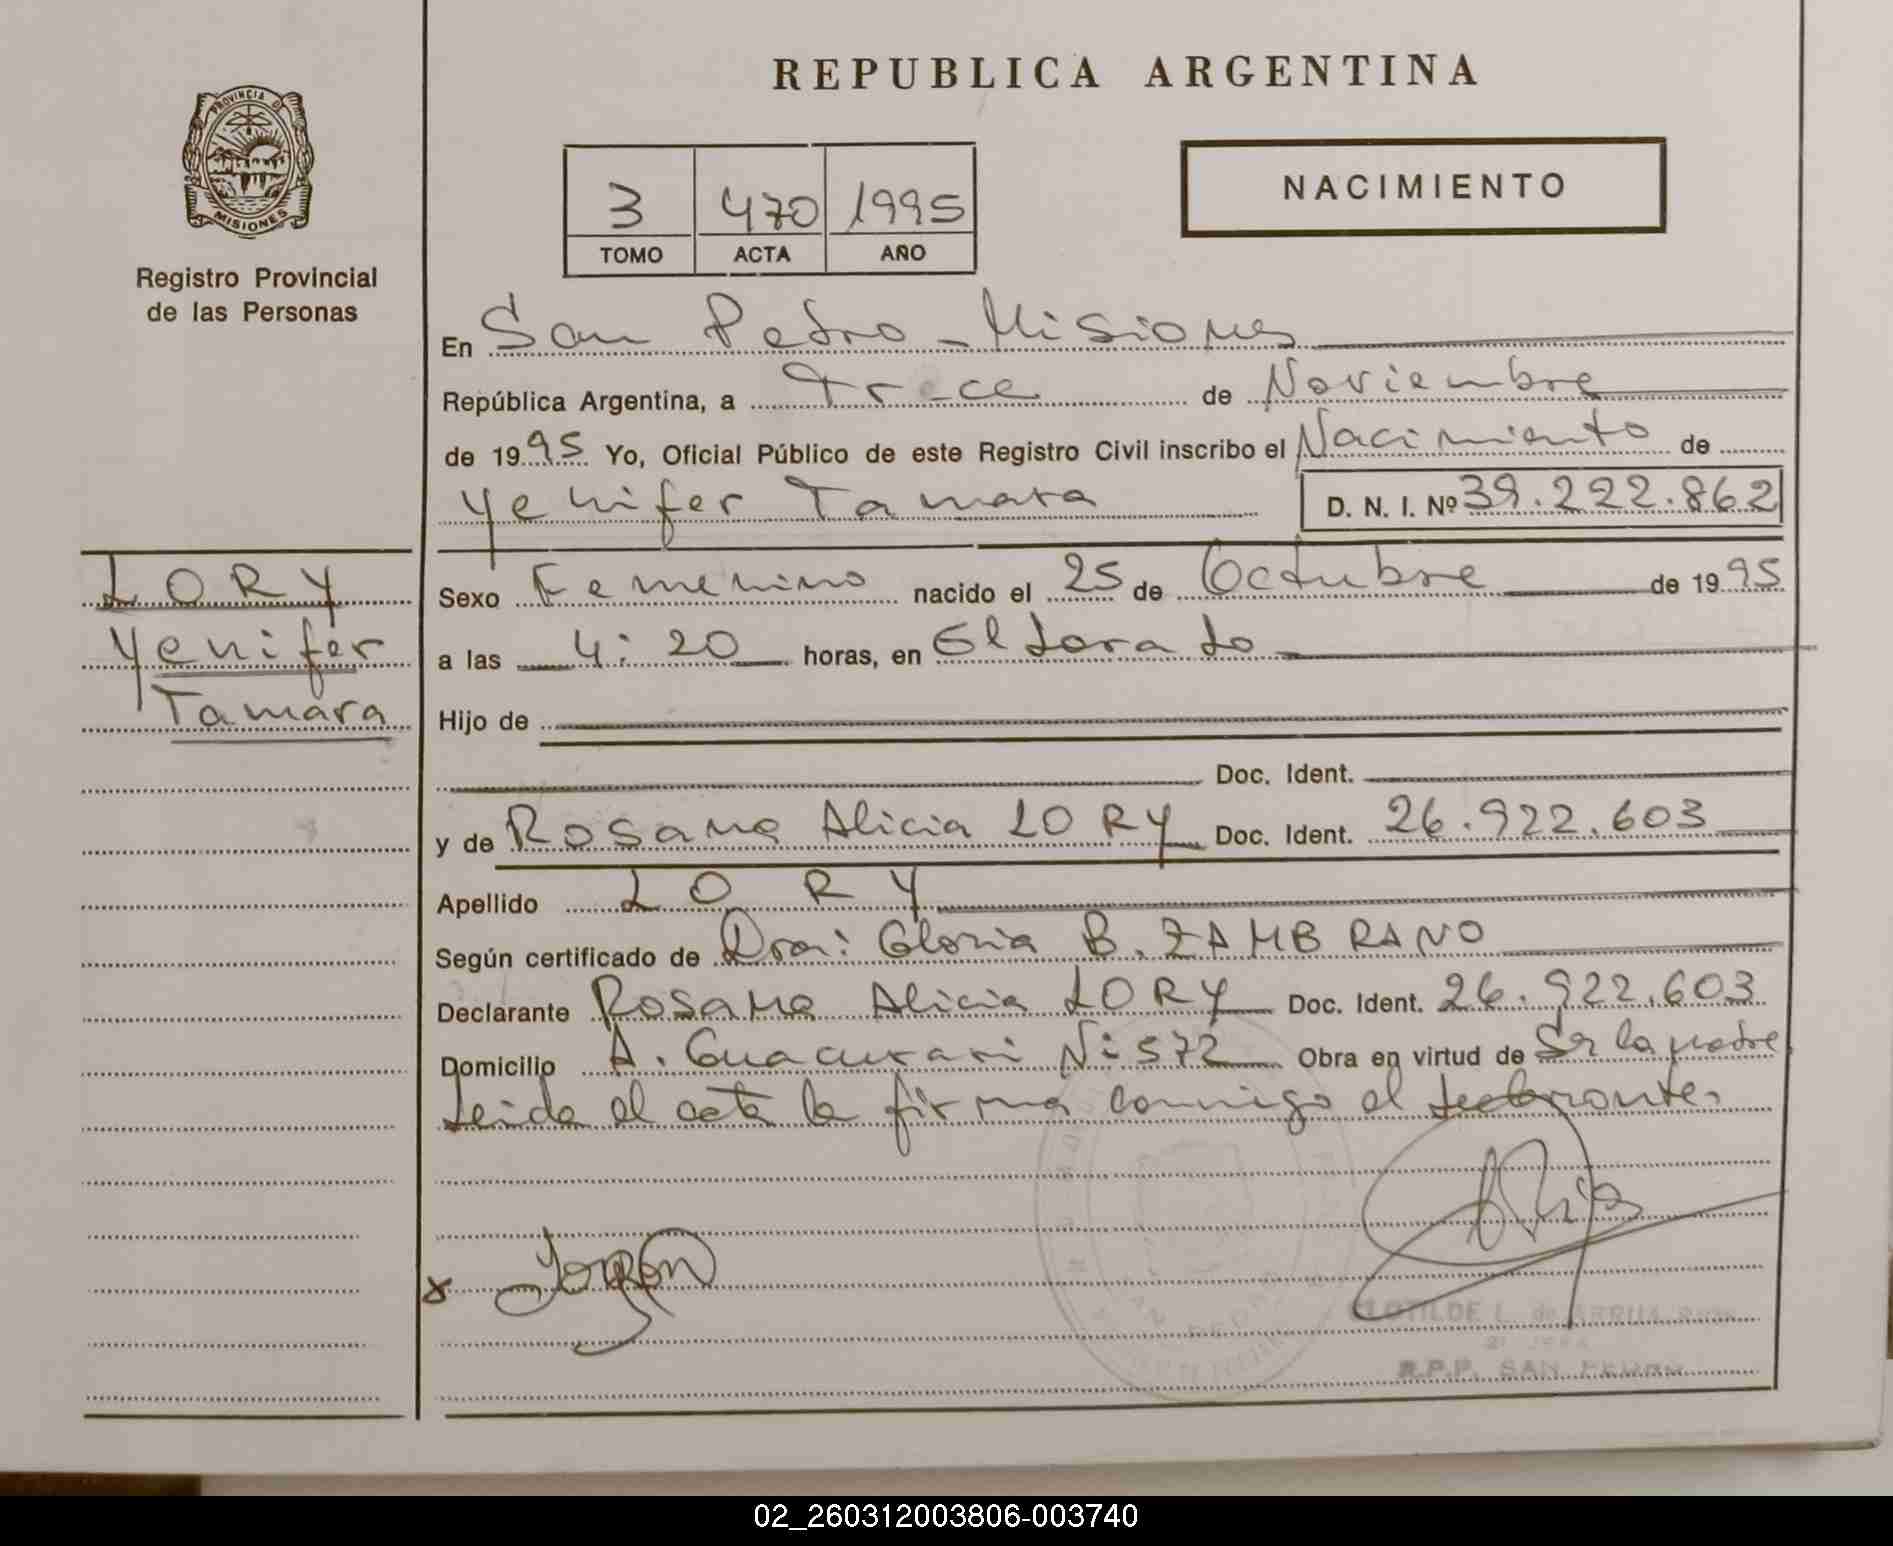 REPUBLICA ARGENTINA
PROVINCIA DE
MISIONES
Registro Provincial
de las Personas
3 470 1995
TOMO ACTA AÑO
NACIMIENTO
En San Pedro - Misiones
República Argentina, a Trece de Noviembre
de 1995 Yo, Oficial Público de este Registro Civil inscribo el Nacimiento de
Yenifer Tamara D. N. I. Nº 39.222.862
LORY
Yenifer
Tamara
Sexo Femenino nacido el 25 de Octubre de 1995
a las 4:20 horas, en Eldorado
Hijo de
Doc. Ident.
y de Rosana Alicia LORY Doc. Ident. 26.922.603
Apellido LORY
Según certificado de Dra: Gloria B. ZAMBRANO
Declarante Rosana Alicia LORY Doc. Ident. 26.922.603
Domicilio A. Guacurari Nº 572 Obra en virtud de Ser la madre
Leida el acta la firma conmigo el declarante.
x
CLOTILDE L. de
R.P.P. SAN PEDRO
02_260312003806-003740